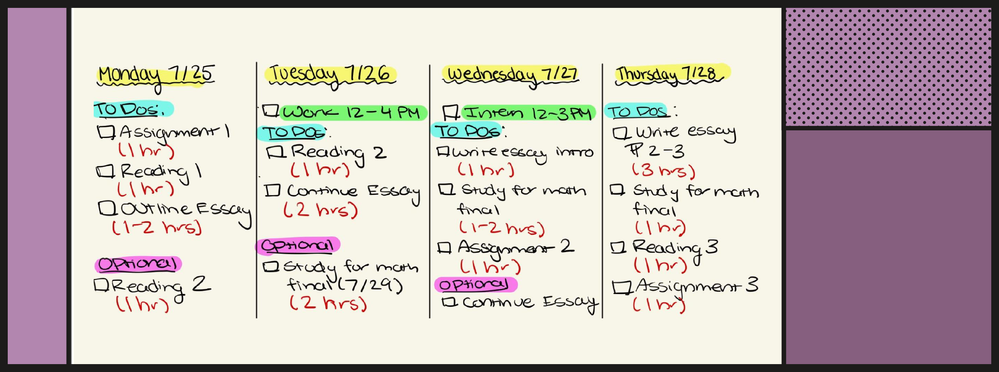 Monday 7/25
TO DOs:
Assignment 1
(1 hr)
Reading 1
(1 hr)
Outline Essay
(1-2 hrs)
Optional
Reading 2
(1 hr)
Tuesday 7/26
Work 12-4 PM
TO DOs:
Reading 2
(1 hr)
Continue Essay
(2 hrs)
Optional
Study for math
final (7/29)
(2 hrs)
Wednesday 7/27
Intern 12-3PM
TO DOs:
Write essay intro
(1 hr)
Study for math
final
(1-2 hrs)
Assignment 2
(1 hr)
Optional
Continue Essay
Thursday 7/28
TO DOs:
Write essay
¶ 2-3
(3 hrs)
Study for math
final
(1 hr)
Reading 3
(1 hr)
Assignment 3
(1 hr)